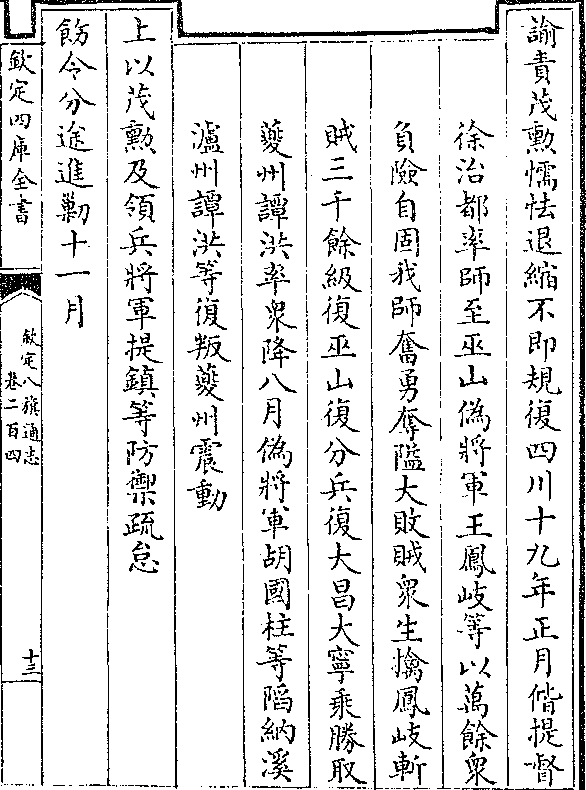 諭責茂勲懦怯退縮不即規復四川十九年正月偕提督
徐治都率師至巫山偽將軍王鳳岐等以萬餘衆
負險自固我師奮勇奪隘大敗賊衆生擒鳳岐斬
賊三千餘級復巫山復分兵復大昌大寧乘勝取
夔州譚洪率衆降八月偽將軍胡國柱等䧟納溪
瀘州譚洪等復叛夔州震動
上以茂勲及領兵將軍提鎮等防禦疏怠
飭令分途進勦十一月
欽定四庫全書
欽定八旗通志
卷二百四
十三